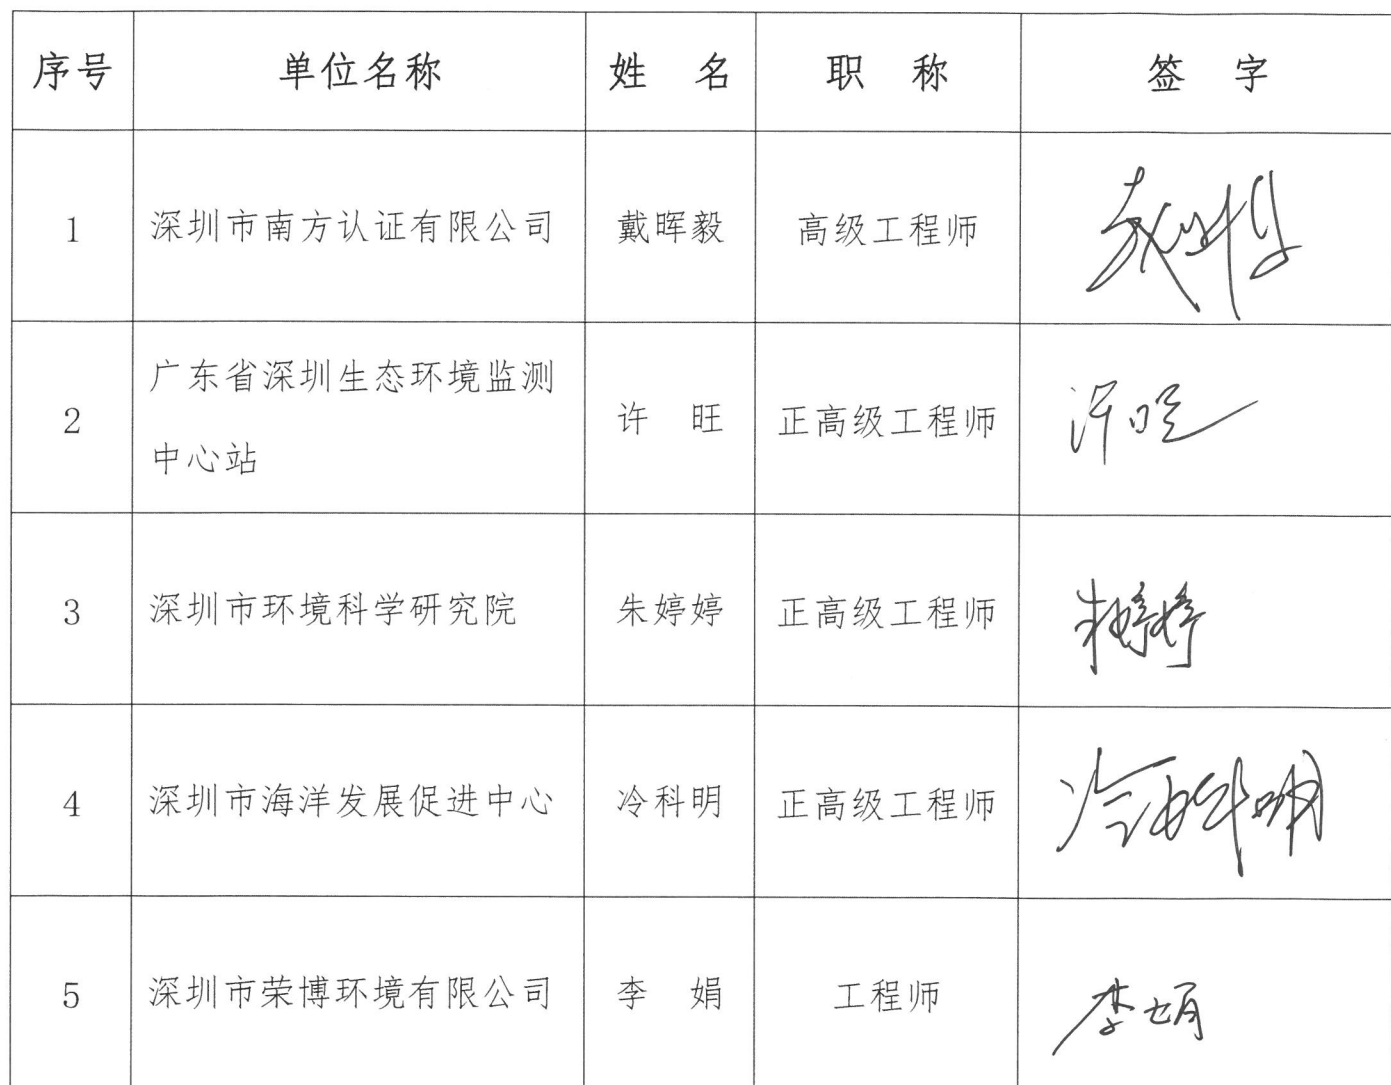 序号 单位名称 姓 名 职 称 签 字
1 深圳市南方认证有限公司 戴晖毅 高级工程师
广东省深圳生态环境监测
2 许 旺 正高级工程师 许旺
中心站
3 深圳市环境科学研究院 朱婷婷 正高级工程师 朱婷婷
4 深圳市海洋发展促进中心 冷科明 正高级工程师 冷科明
5 深圳市荣博环境有限公司 李 娟 工程师 李娟